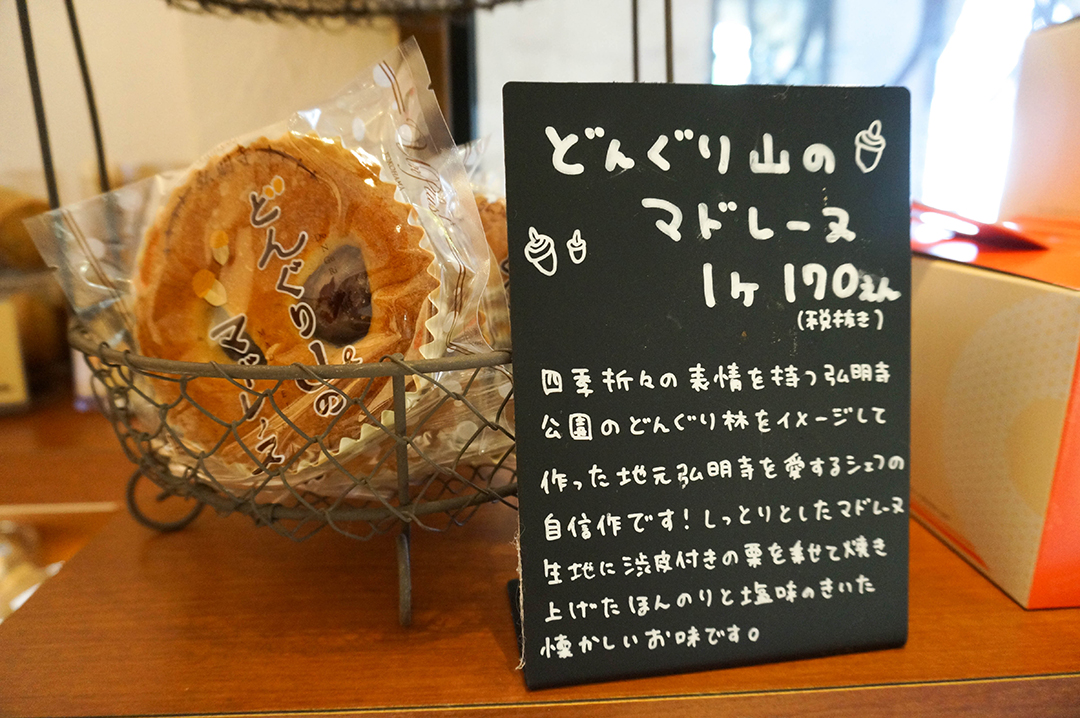 どんぐり山の
マドレーヌ
1ヶ 170えん
(税抜き)
四季折々の表情を持つ弘明寺
公園のどんぐり林をイメージして
作った地元弘明寺を愛するシェフの
自信作です!しっとりとしたマドレーヌ
生地に渋皮付きの栗を乗せて焼き
上げたほんのりと塩味のきいた
懐かしいお味です。
どんぐり山の
マドレーヌ